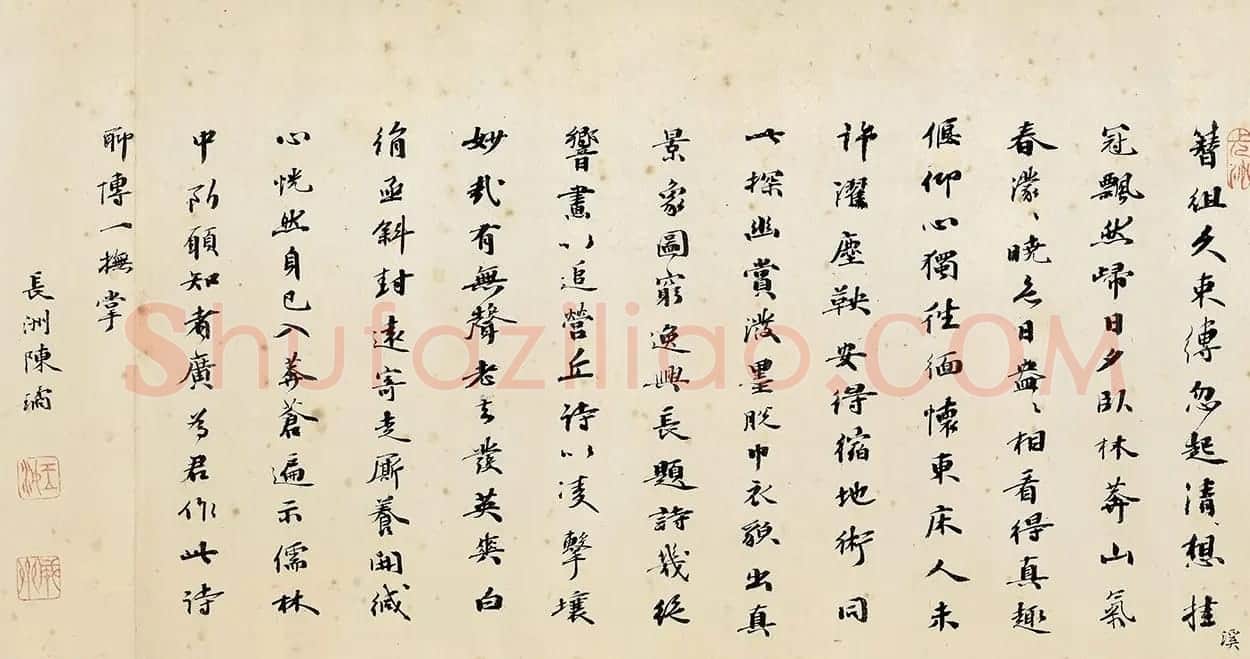 簪組久束縛忽起清想挂
溪
冠飄然歸日夕臥林莽山氣
春濛〻曉色日盎〻相看得真趣
偃仰心獨往緬懷東床人未
許濯塵鞅安得縮地術同
此探幽賞潑墨脫巾衣貌出真
景象圖窮逸興長題詩幾絕
響畫以追營丘詩以凌擊壤
妙哉有無聲老去發英爽白
絹函斜封遠寄走廝養開緘
心恍然自已入莽蒼遍示儒林
中所願知者廣為君作此詩
聊博一撫掌
長洲陳璚
玉汝
Shufaziliao.COM